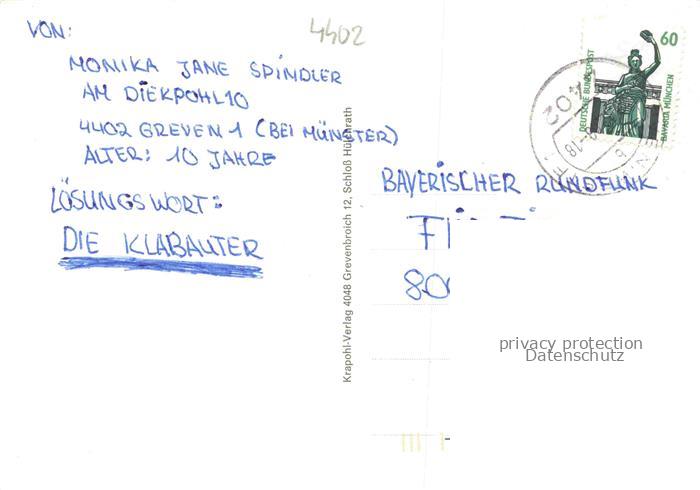 4402
VON:
MONIKA JANE SPINDLER
AM DIEKPOHL 10
4402 GREVEN 1 (BEI MÜNSTER)
ALTER: 10 JAHRE
LÖSUNGSWORT:
DIE KLABAUTER
Krapohl-Verlag 4048 Grevenbroich 12, Schloß Hülchrath
60
DEUTSCHE BUNDESPOST
BAVARIA MÜNCHEN
402
-18
BAYERISCHER RUNDFUNK
80
privacy protection
Datenschutz